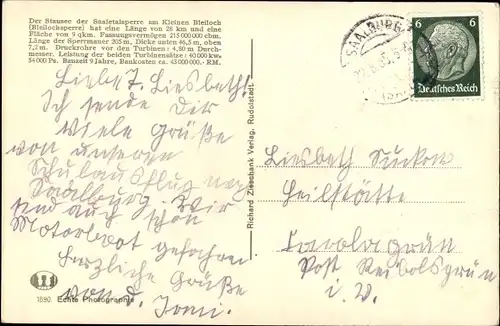 Der Stausee der Saaletalsperre am Kleinen Bleiloch
(Bleilochsperre) hat eine Länge von 28 km und eine
Fläche von 9 qkm. Fassungsvermögen 215 000 000 cbm.
Länge der Sperrmauer 205 m, Dicke unten 46,5 m, oben
7,2 m. Druckrohre vor den Turbinen: 4,80 m Durch-
messer. Leistung der beiden Turbinensätze: 40 000 kW,
54 000 Ps. Bauzeit 9 Jahre, Baukosten ca. 43 000 000.- RM.
Liebe Liesbeth!
Ich sende Dir
viele Grüße
von unserem
Schulausflug nach
Saalburg. Wir
sind auch schon
Motorboot gefahren.
Herzliche Grüße
von d. Irmi.
1890. Echte Photographie
Richard Zieschank Verlag, Rudolstadt
SAALBURG
6 6
Deutsches Reich
Liesbeth
Heilstätte
Carolagrün
Post Reiboldsgrün
i. V.